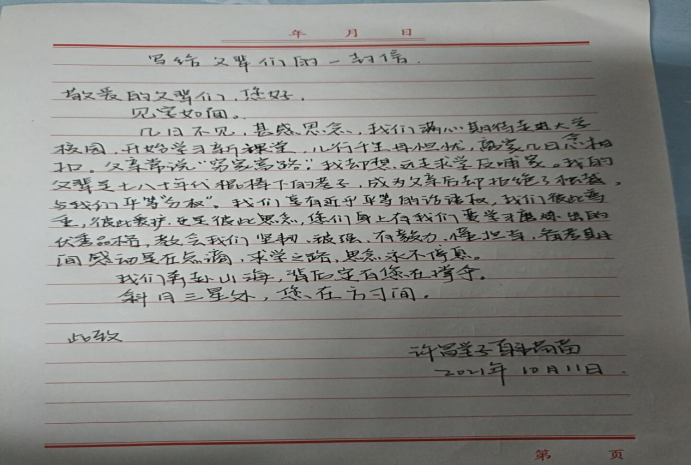 年 月 日
写给父辈们的一封信
敬爱的父辈们，您好，
见字如面。
几日不见，甚感思念，我们满心期待走进大学
校园，开始学习新课堂，儿行千里母担忧，离家几日总相
父亲常说“穷家富路”，我却想远走求学反哺家。我的
父辈是七八十年代棍棒下的孝子，成为父亲后却拒绝了棍棒，
与我们平等“分权”。我们享有近乎平等的话语权，我们彼此尊
重，彼此爱护，更是彼此思念，您们身上有我们要学习磨炼出的
优秀品格，教会我们坚韧、顽强、有毅力、懂担当，
间感动是在点滴，求学之路，思念永不停息。
我们奔赴山海，背后定有您在撑伞。
斜月三星处，您在方寸间。
此致
许昌学子
2021年10月11日.
第 页